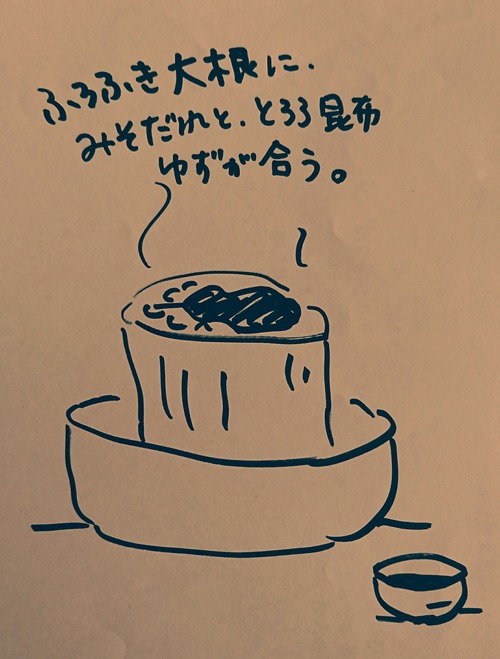 ふろふき大根に、
みそだれと、とろろ昆布
ゆずが合う。